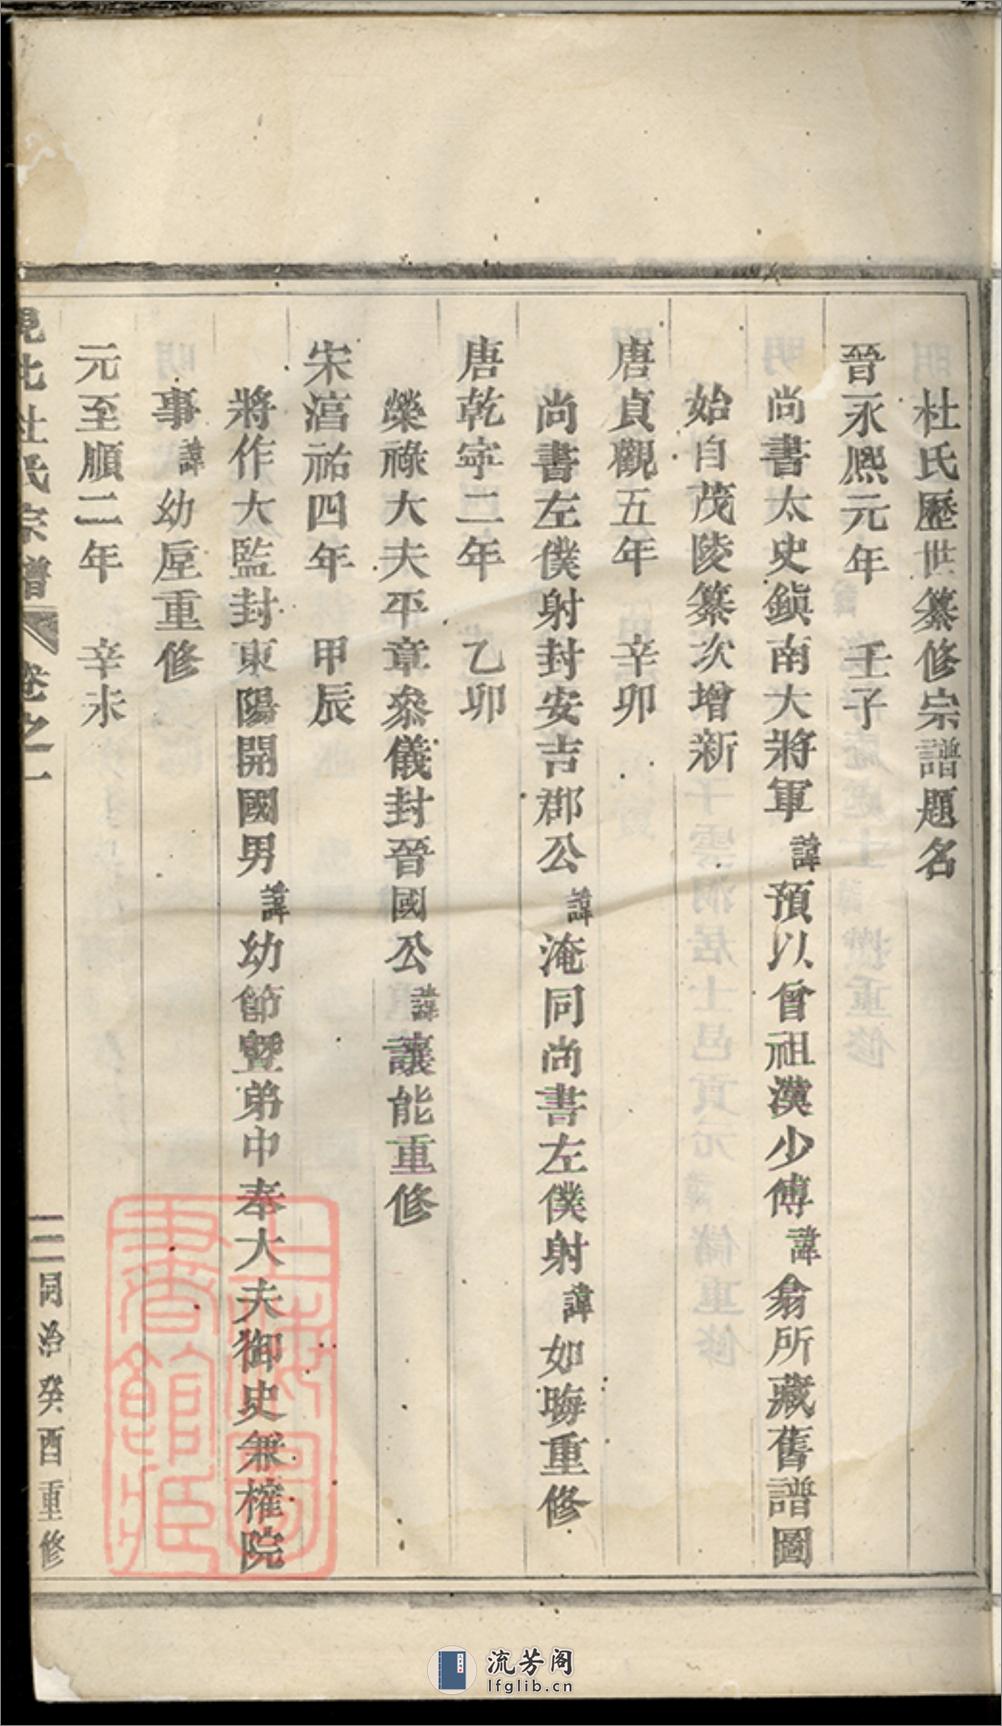 杜氏歷世纂修宗譜題名
晉永熈元年　壬子
尚書太史鎮南大將軍諱預以曾祖漢少傅諱翕所藏舊譜圖
始自茂陵纂次增新
唐貞觀五年　辛卯
尚書左僕射封安吉郡公諱淹同尚書左僕射諱如晦重修
唐乾寧二年　乙卯
榮祿大夫平章叅儀封晉國公諱讓能重修
宋湻祐四年　甲辰
將作大監封東陽開國男諱幼節暨弟中奉大夫御史兼權院
事諱幼垕重修
元至順二年　辛未
北杜氏宗譜　卷之一　三　同治癸酉重修
上海圖書館藏
流芳阁
lfglib.cn